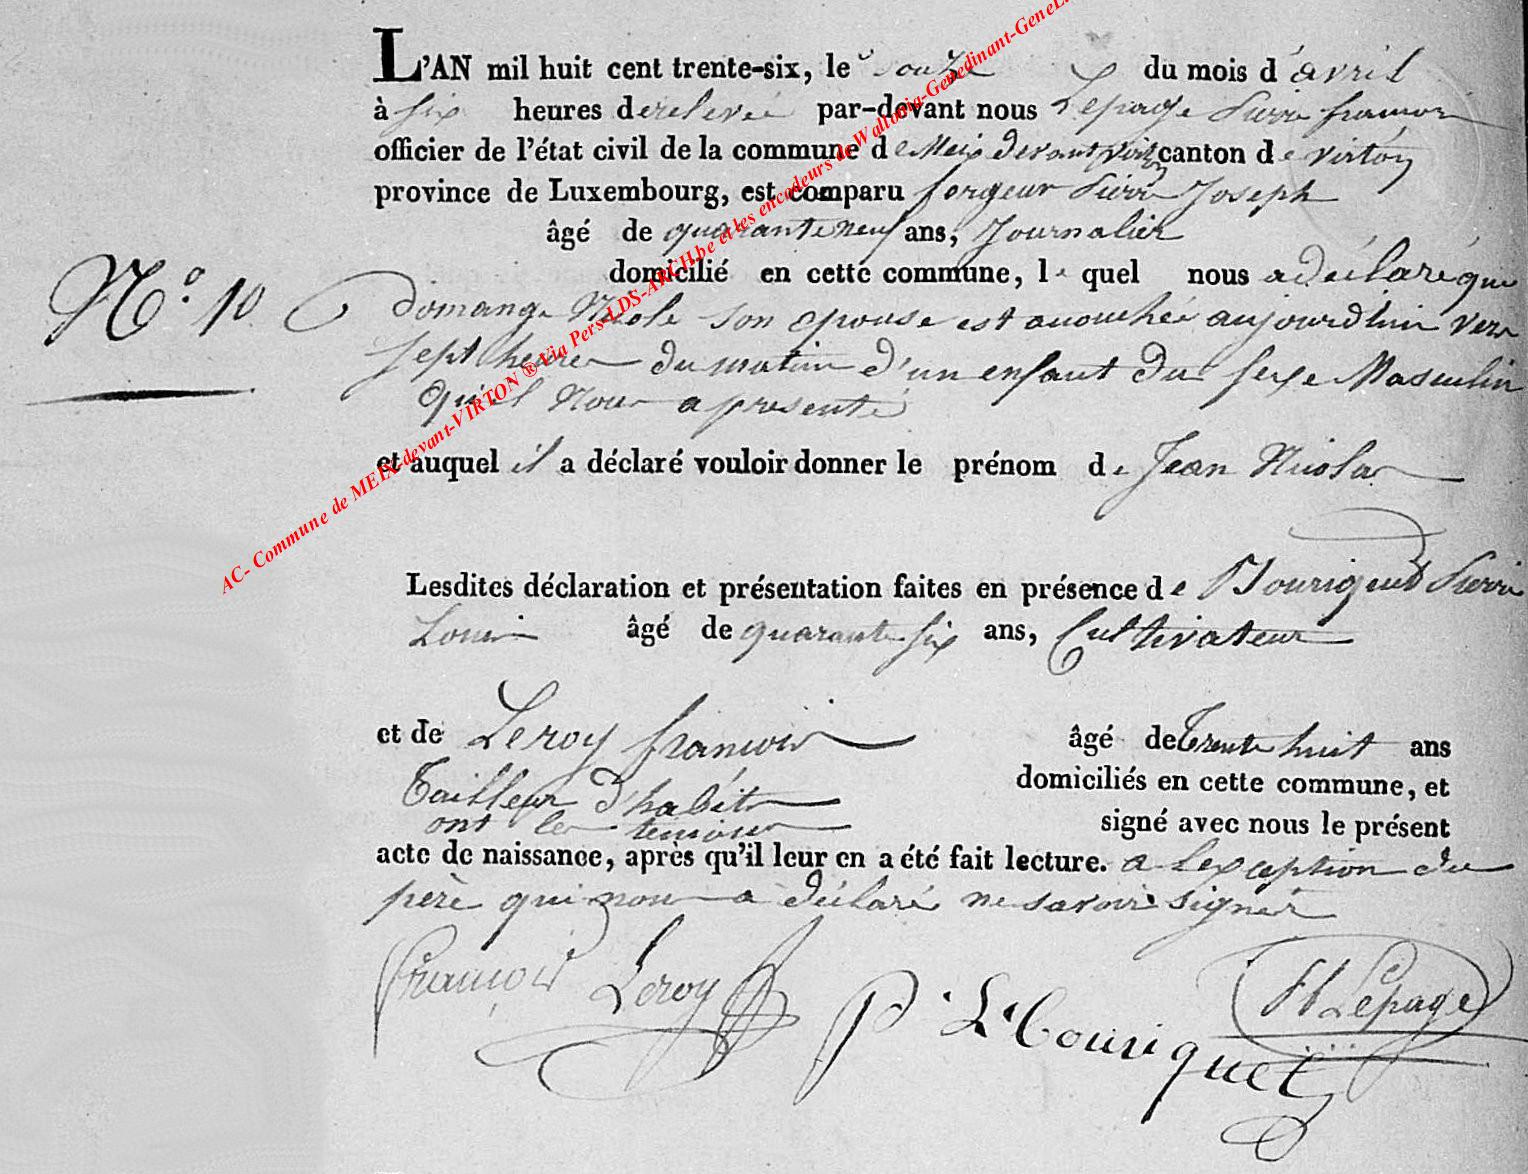 L'AN mil huit cent trente-six, le douze du mois d'avril
à six heures derelevée par-devant nous Lepage Pierre françois
officier de l'état civil de la commune de Meix devant Virton canton de virton
province de Luxembourg, est comparu forgeur Pierre Joseph
âgé de quarante neuf ans, Journalier
domicilié en cette commune, le quel nous a déclaré que
N° 10 domange Nicole son epouse est acouchée aujourd'hui vers
sept heures du matin d'un enfant du sexe Masculin
qu'il Nous a presenté
et auquel il a déclaré vouloir donner le prénom de Jean Nicolas
Lesdites déclaration et présentation faites en présence de Bouriquet Pierre
Louis âgé de quarante six ans, Cultivateur
et de Leroy françois âgé de Trente huit ans
Tailleur d'habits domiciliés en cette commune, et
ont les temoins signé avec nous le présent
acte de naissance, après qu'il leur en a été fait lecture. a Lexception du
père qui nous a déclaré ne savoir signer
François Leroy P. L. Bouriquet Lepage
AC- Commune de MEIX-devant-VIRTON ® Via Pers-LDS-ARCH.be et les encodeurs de Wallonia-Genedinant-GeneL